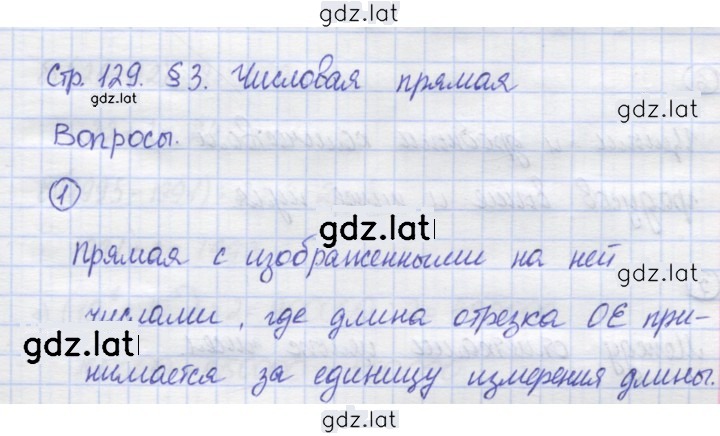 gdz.lat
Стр. 129. §3. Числовая прямая
gdz.lat
gdz.lat
Вопросы.
1
gdz.lat
прямая с изображенными на ней
gdz.lat
числами, где длина отрезка OE при-
gdz.lat
нимается за единицу измерения длины.
gdz.lat